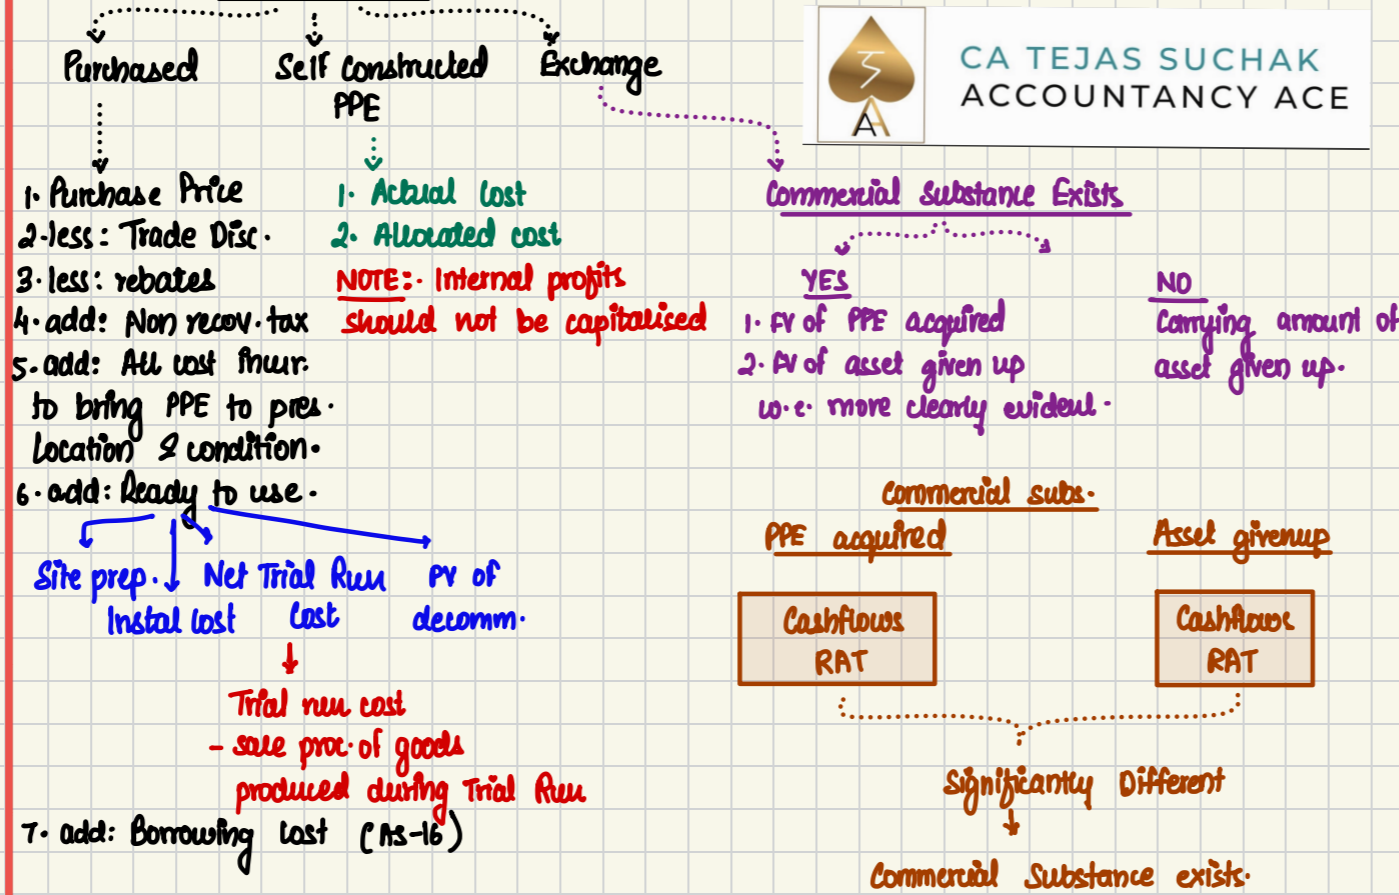 Purchased
Self Constructed
PPE
Exchange
CA TEJAS SUCHAK
ACCOUNTANCY ACE
1. Purchase Price
2. less: Trade Disc.
3. less: rebates
4. add: Non recov. tax
5. add: All cost incurr.
to bring PPE to pres.
Location & condition.
6. add: Ready to use.
Site prep.
Instal cost
Net Trial Run
Cost
PV of
decomm.
Trial run cost
- sale proc. of goods
produced during Trial Run
7. add: Borrowing cost (AS-16)
1. Actual cost
2. Allocated cost
NOTE:- Internal profits
should not be capitalised
Commercial Substance Exists
YES
1. FV of PPE acquired
2. FV of asset given up
w.e. more clearly evident.
NO
Carrying amount of
asset given up.
Commercial subs.
PPE acquired
Cashflows
RAT
Asset givenup
Cashflows
RAT
Significantly Different
Commercial Substance exists.